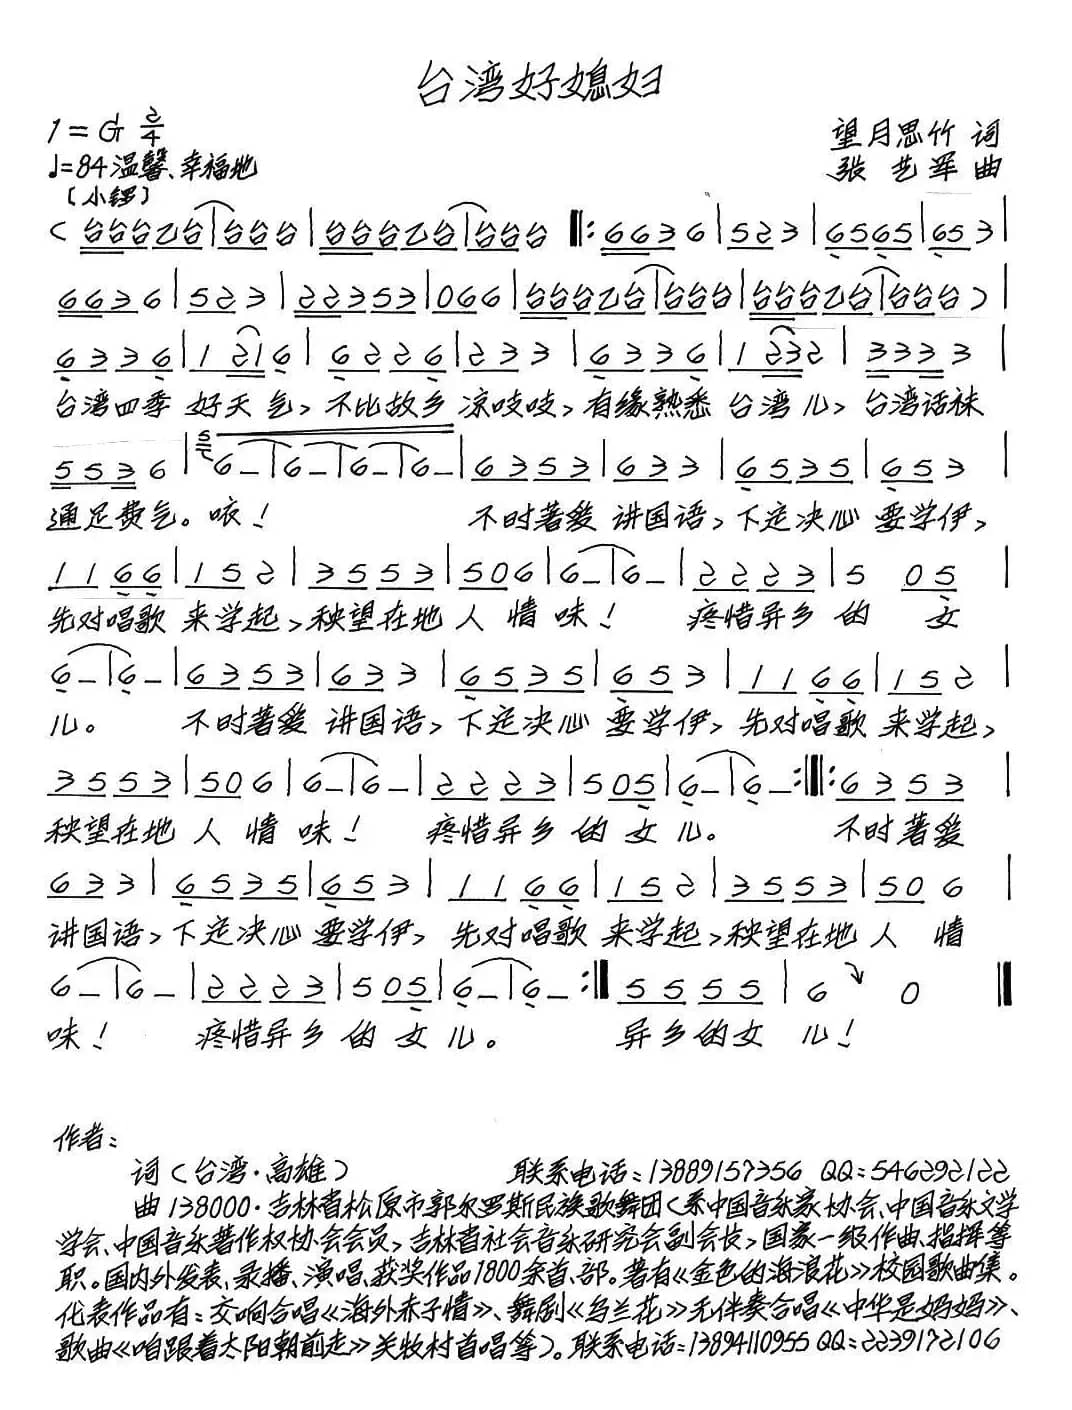 台湾好媳妇
1=G 2/4
望月思竹 词
♩=84 温馨、幸福地
张艺军 曲
(小锣)
( 台台台乙台|台台台|台台台乙台|台台台 ‖: 6636|523|6565|653|
6636|523|22353|066|台台台乙台|台台台|台台台乙台|台台台)|
6336|1216|6226|233|6336|1232|3333|
台湾四季 好天气, 不比故乡 凉吱吱, 有缘熟悉 台湾儿, 台湾话袜
5536|6–|6–|6–|6–|6353|633|6535|653|
通足费气。咳! 不时著爱 讲国语, 下定决心 要学伊,
1166|152|3553|506|6–|6–|2223|5 05|
先对唱歌 来学起, 秧望在地 人 情 味! 疼惜异乡 的 女
6–|6–|6353|633|6535|653|1166|152|
儿。 不时著爱 讲国语, 下定决心 要学伊, 先对唱歌 来学起,
3553|506|6–|6–|2223|505|6–|6–:‖:6353|
秧望在地 人 情 味! 疼惜异乡 的 女 儿。 不时著爱
633|6535|653|1166|152|3553|506|
讲国语, 下定决心 要学伊, 先对唱歌 来学起, 秧望在地 人 情
6–|6–|2223|505|6–|6–:‖5555|6 0‖
味! 疼惜异乡 的 女 儿。 异乡的女 儿!
作者:
词(台湾·高雄) 联系电话:13889157356 QQ:546292122
曲138000·吉林省松原市郭尔罗斯民族歌舞团(系中国音乐家协会、中国音乐文学
学会、中国音乐著作权协会会员,吉林省社会音乐研究会副会长,国家一级作曲、指挥等
职。国内外发表、录播、演唱、获奖作品1800余首、部。著有《金色的海浪花》校园歌曲集。
代表作品有:交响合唱《海外赤子情》、舞剧《乌兰花》无伴奏合唱《中华是妈妈》、
歌曲《咱跟着太阳朝前走》关牧村首唱等)。联系电话:13894110955 QQ:2239172106